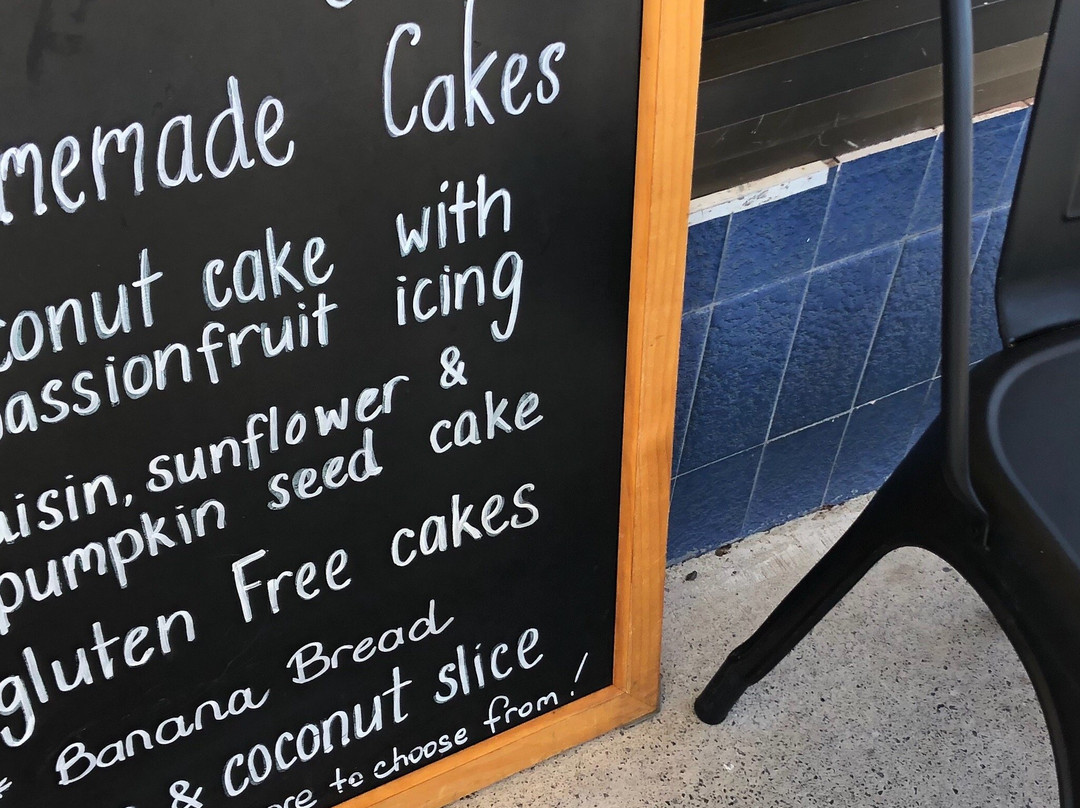 memade Cakes
conut cake with
passionfruit icing
aisin, sunflower &
pumpkin seed cake
gluten Free cakes
* Banana Bread
& coconut slice
ore to choose from!